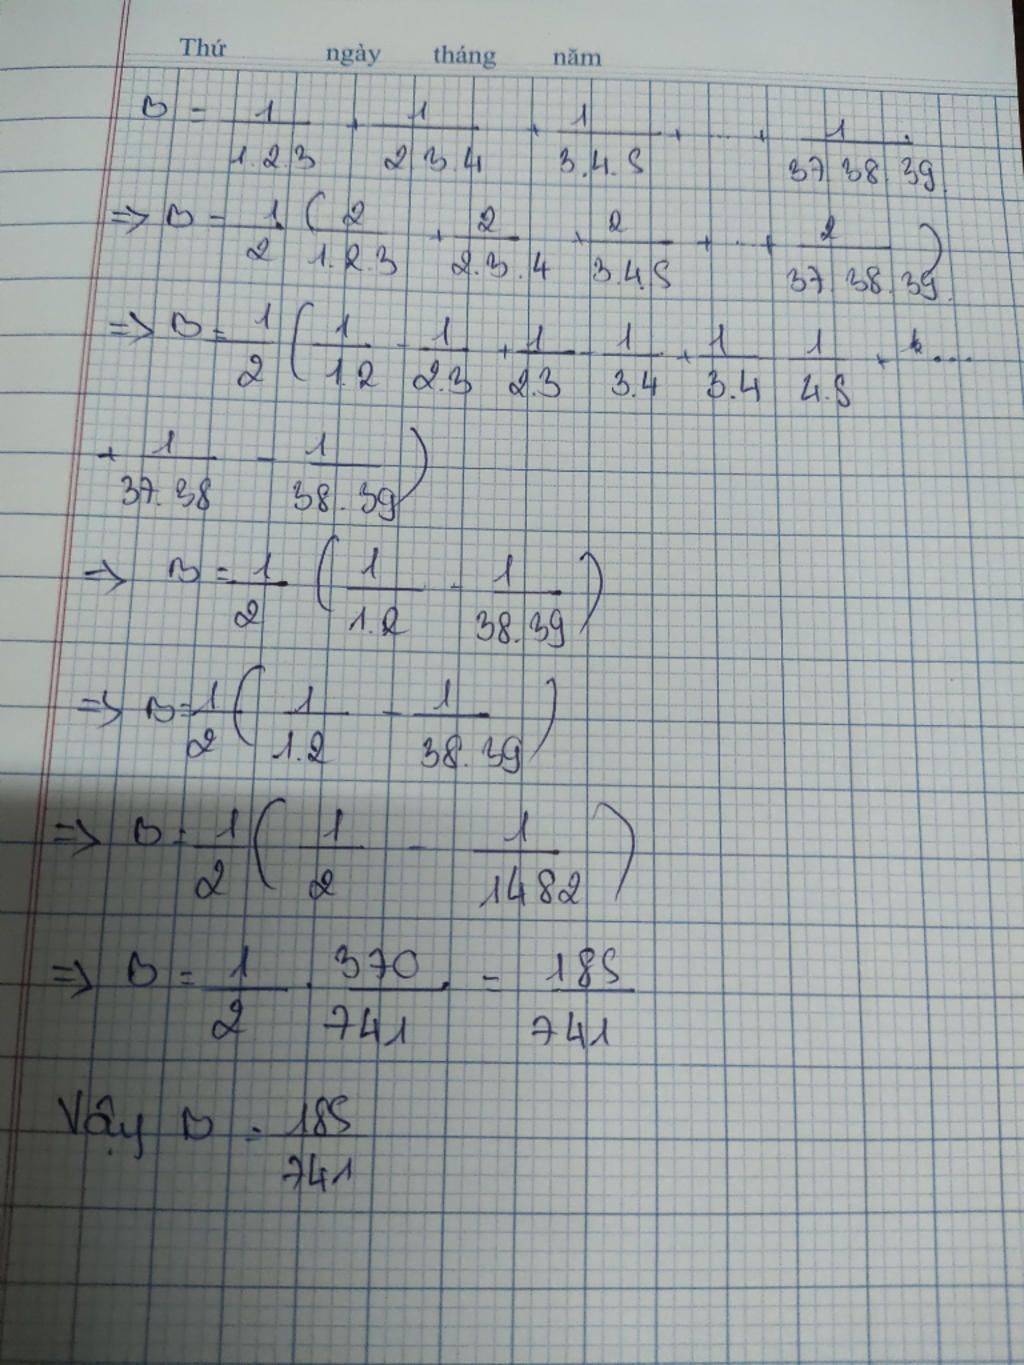 Thứ ngày tháng năm
B = 1/1.2.3 + 1/2.3.4 + 1/3.4.5 + ... + 1/37.38.39
=> B = 1/2 (2/1.2.3 + 2/2.3.4 + 2/3.4.5 + ... + 2/37.38.39)
=> B = 1/2 (1/1.2 - 1/2.3 + 1/2.3 - 1/3.4 + 1/3.4 - 1/4.5 + ...
+ 1/37.38 - 1/38.39)
=> B = 1/2 (1/1.2 - 1/38.39)
=> B = 1/2 (1/1.2 - 1/38.39)
=> B = 1/2 (1/2 - 1/1482)
=> B = 1/2 . 370/741 = 185/741
Vậy B = 185/741